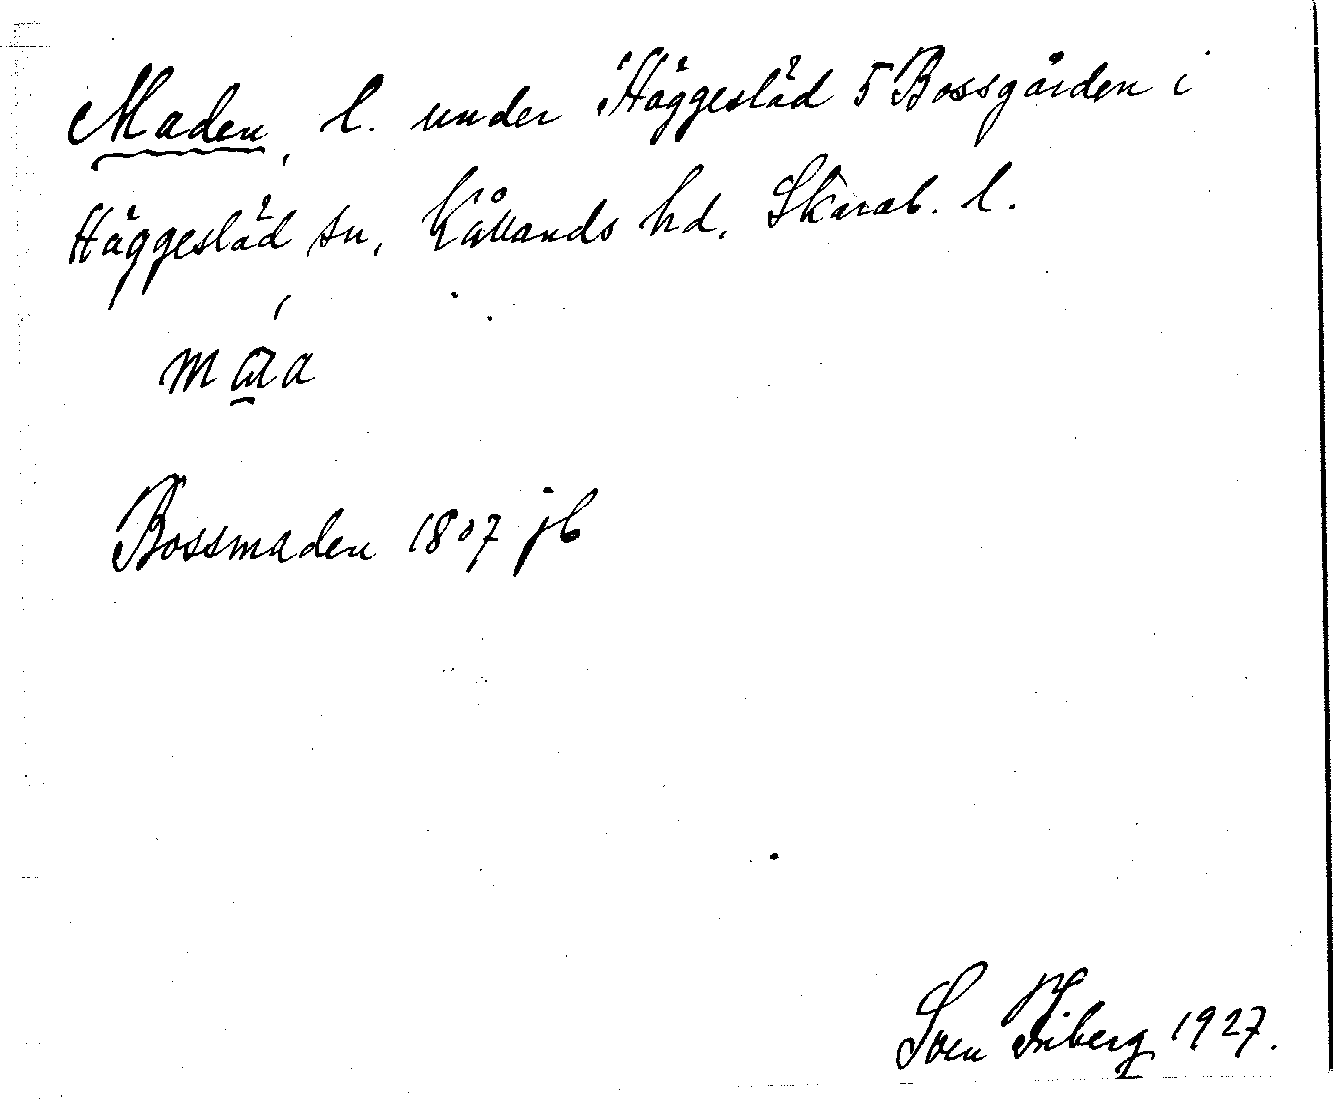 Maden, l. under Häggesläd 5 Bossgården i
Häggesläd sn, Kållands hd, Skarab. l.
Bossmaden 1807 jb
Sven Friberg 1927.